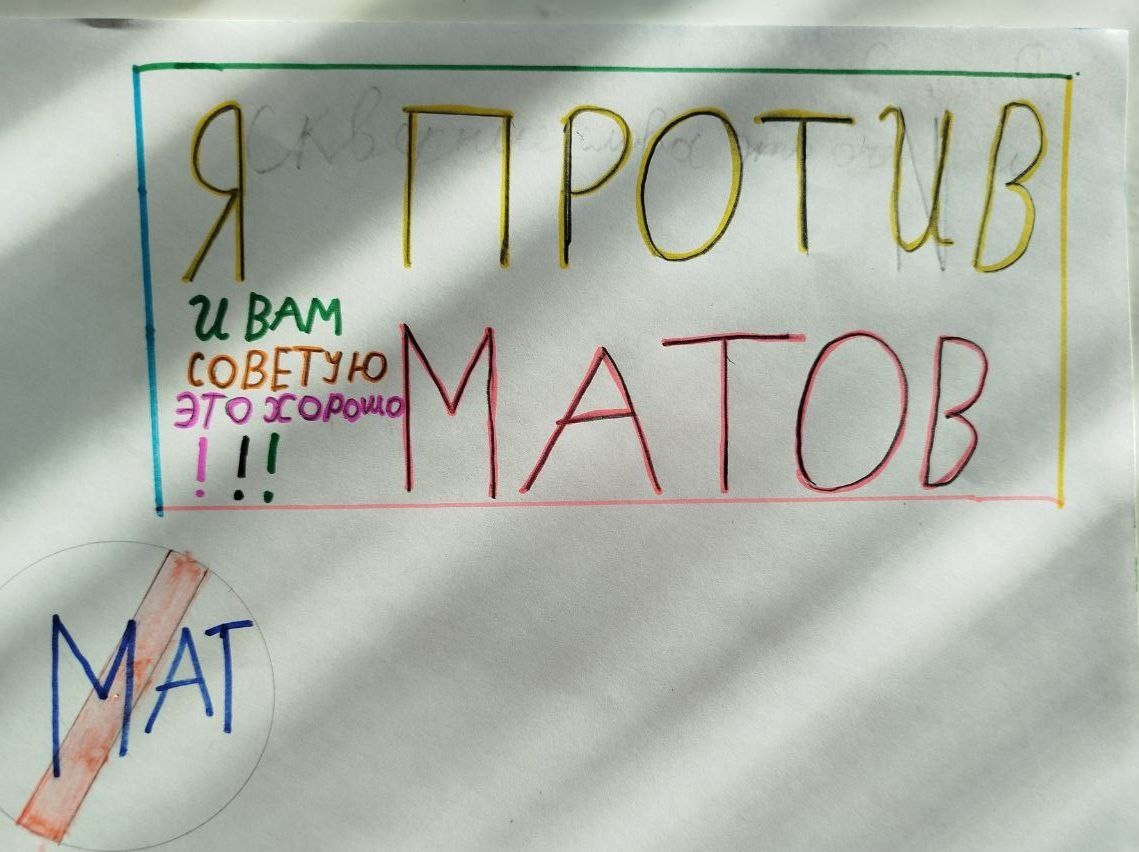 Я ПРОТИВ
МАТОВ
И ВАМ
СОВЕТУЮ
ЭТО ХОРОШО
!!!
МАТ